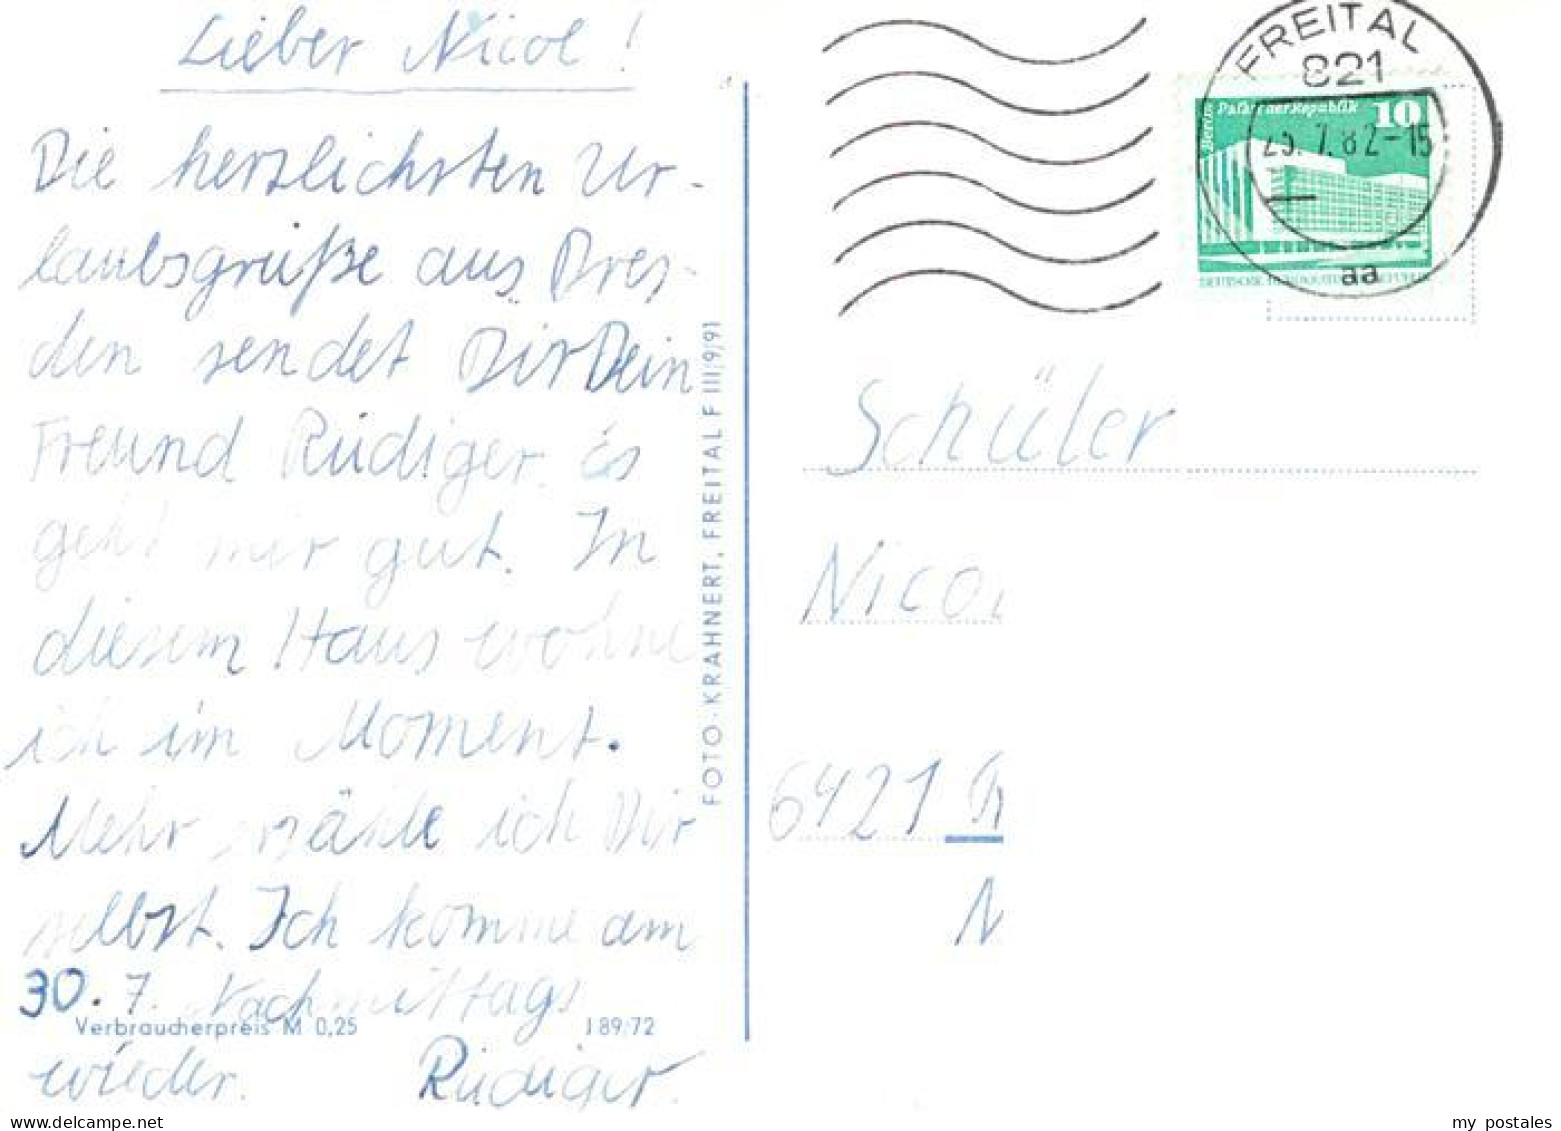 Lieber Nicol!
Die herzlichsten Ur-
laubsgrüße aus Dres-
den sendet Dir Dein
Freund Rüdiger. Es
geht mir gut. In
diesem Haus wohne
ich im Moment.
Mehr erzähle ich Dir
selbst. Ich komme am
30. 7. Nachmittags
Verbraucherpreis M 0,25 J 89/72
wieder. Rüdiger.
FOTO-KRAHNERT, FREITAL F III/9/91
FREITAL
821
Berlin Palast der Republik 10
7.82-15
DEUTSCHE DEMOKRATISCHE REPUBLIK
aa
Schüler
Nicol
6421
N
my postales